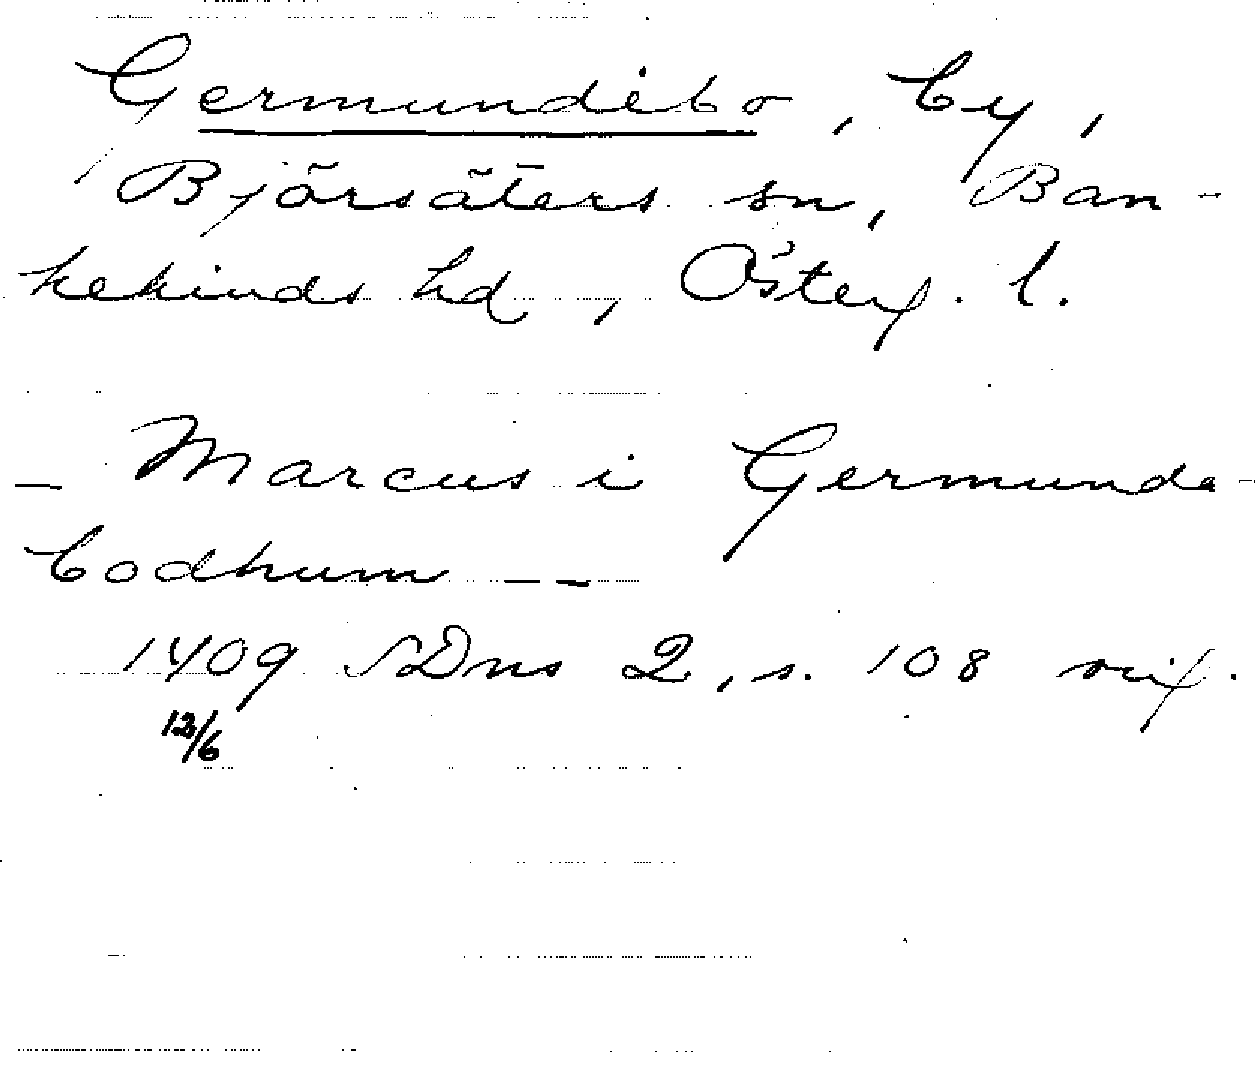 Germundebo, by,
Björsäters sn, Ban-
kekinds hd, Österg. l.
- Marcus i Germunda-
bodhum --
1409 SDns 2, s. 108
12/6